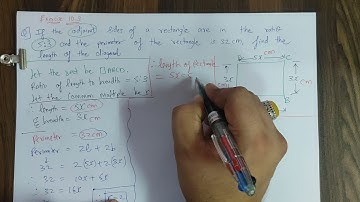 Q) If the adjacent sides of a rectangle are in the ratio
5:3 and the perimeter of the rectangle is 32 cm, find the
length of the diagonal
Let the rect be
Ratio of length to breadth = 5:3
Let the common multiple be x
∴ length = 5x cm
& breadth = 3x cm
Perimeter = 32 cm
Perimeter = 2l + 2b
32 = 2(5x) + 2(3x)
32 = 10x + 6x
∴ 32 = 16x
∴ length of rectangle
= 5x
5x cm
3x
cm
3x
cm
B